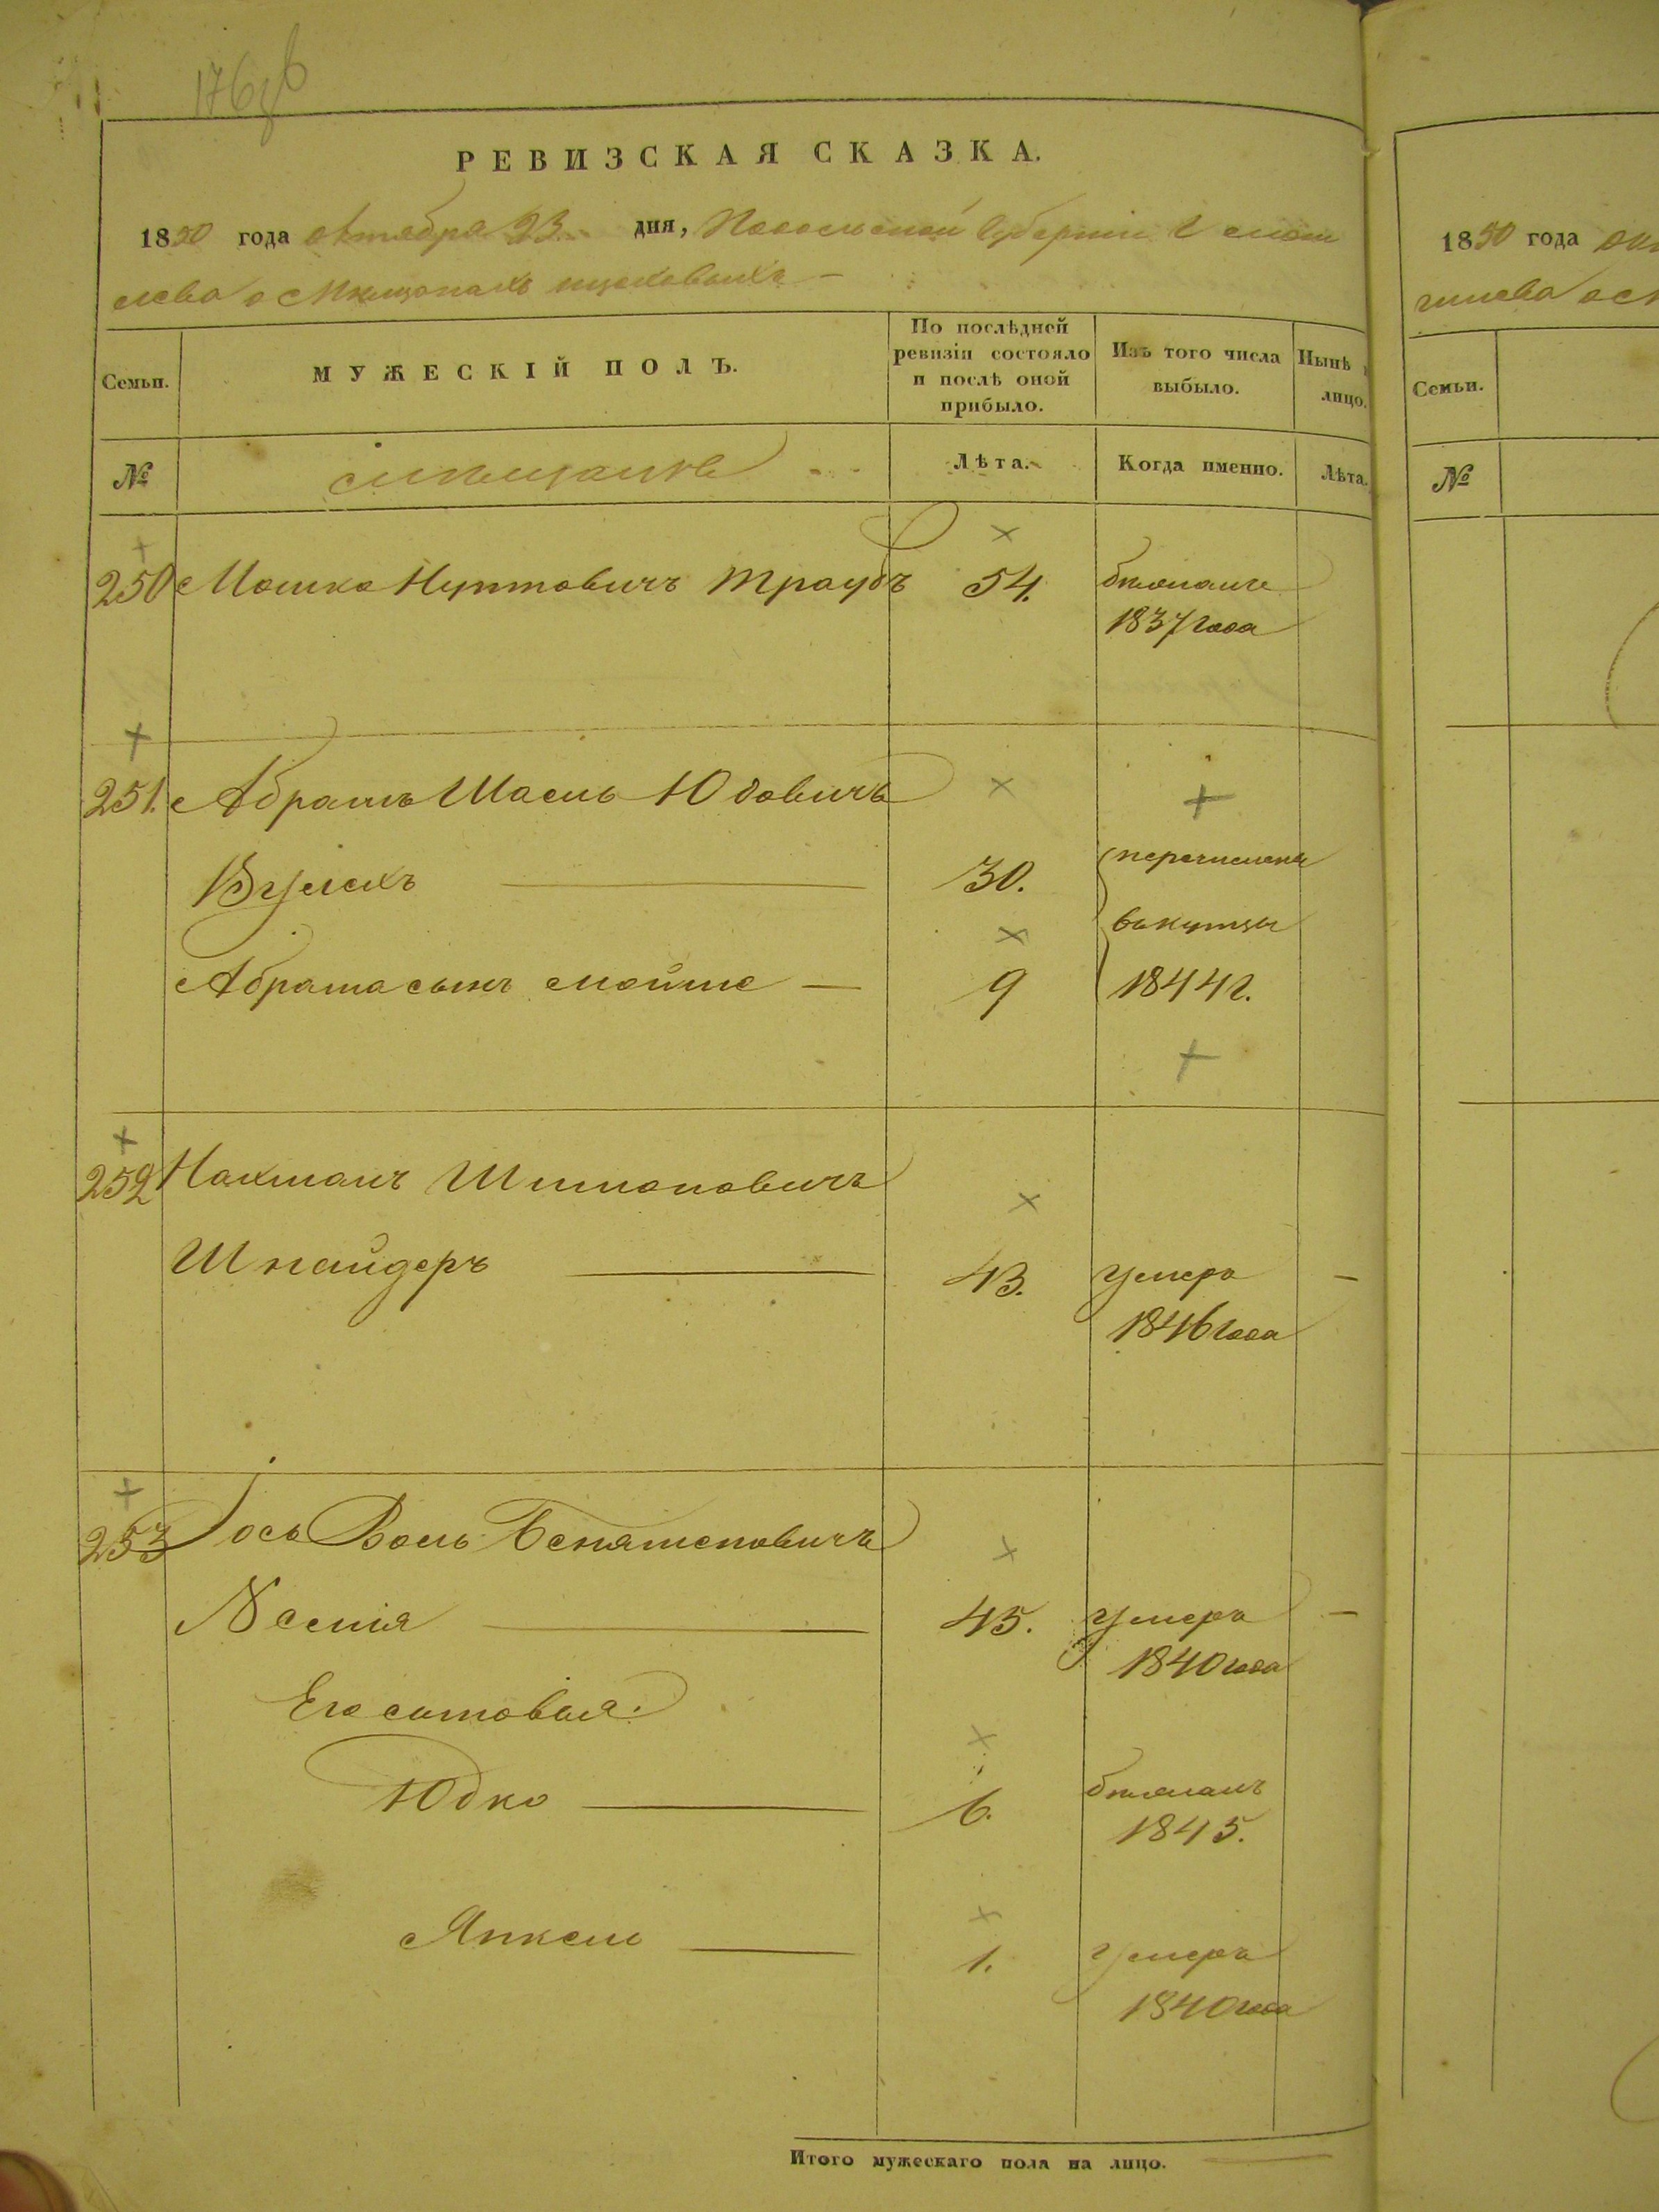 РЕВИЗСКАЯ СКАЗКА.
1850 года октября 23 дня, Подольской Губернии
о Мѣщанахъ
Семьи.
МУЖЕСКІЙ ПОЛЪ.
По послѣдней ревизіи состояло и послѣ оной прибыло.
Изъ того числа выбыло.
Нынѣ
лицо.
№
Мѣщане
Лѣта.
Когда именно.
Лѣта.
250 Мошко Нутовичъ Траубъ 54. бѣжалъ
1837 года
251. Абрамъ Шаель Юдовичъ
30. перечислены
въ купцы
Абрама сынъ Мойше 9 1844 г.
252 Нахманъ Шимоновичъ
Шнайдеръ 43. умеръ
1846 года
253 Іось Волъ Беняменовичъ
45. умеръ
1840 года
Его сыновья.
Юдко 6. бѣжалъ
1845.
Янкель 1. умеръ
1840 года
Итого мужескаго пола на лицо.
1850 года
Семьи.
№